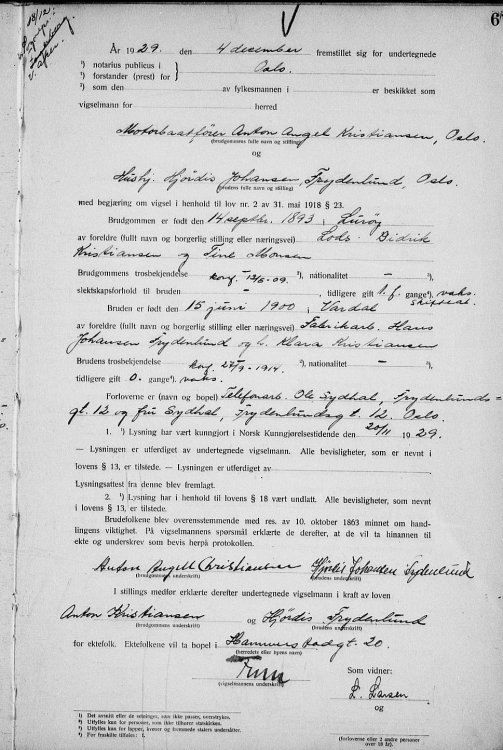 6
18/12
År 1929. den 4 december fremstillet sig for undertegnede
¹) notarius publicus i
²) forstander (prest) for } Oslo.
³) som den av fylkesmannen i er beskikket som
vigselmann for herred
Motorbaatfører Anton Angel Kristiansen, Oslo.
(brudgommens fulle navn og stilling)
og
Husby. Hjördis Johansen, Frydenlund, Oslo.
(brudens fulle navn og stilling)
med begjæring om vigsel i henhold til lov nr. 2 av 31. mai 1918 § 23.
Brudgommen er født den 14 septbr. 1893 i Lurøy
av foreldre (fullt navn og borgerlig stilling eller næringsvei) Lods Didrik
Kristiansen og Tine Monsen
Brudgommens trosbekjendelse konf. 12/5-09. ²), nationalitet – ³),
slektskapsforhold til bruden – , tidligere gift 1. f. gange⁴), vaks.
skifteat.
Bruden er født den 15 juni 1900 i Vardal
av foreldre (fullt navn og borgerlig stilling eller næringsvei) Fabrikarb. Hans
Johansen Frydenlund og h. Klara Kristiansen
Brudens trosbekjendelse konf. 27/9-1914. ²), nationalitet – ³),
tidligere gift 0. gange⁴), vaks.
Forloverne er (navn og bopel) Telefonarb. Ole Sydhal, Frydenlunds-
gt. 12 og fru Sydhal, Frydenlundsgt. 12. Oslo.
1. ¹) Lysning har vært kunngjort i Norsk Kunngjørelsestidende den 20/11 1929.
— Lysningen er utferdiget av undertegnede vigselmann. Alle bevisligheter, som er nevnt i
lovens § 13, er tilstede. — Lysningen er utferdiget av
Lysningsattest fra denne blev fremlagt.
2. ¹) Lysning har i henhold til lovens § 18 vært undlatt. Alle bevisligheter, som nevnt
i lovens § 13, er tilstede.
Brudefolkene blev overensstemmende med res. av 10. oktober 1863 minnet om hand-
lingens viktighet. På vigselmannens spørsmål erklærte de derefter, at de vil ta hinannen til
ekte og underskrev som bevis herpå protokollen.
Anton Angell Christiansen Hjördis Johansen Frydenlund
(brudgommens underskrift) (brudens underskrift)
I stillings medfør erklærte derefter undertegnede vigselmann i kraft av loven
Anton Kristiansen og Hjördis Frydenlund
(brudgommens underskrift) (brudens underskrift)
for ektefolk. Ektefolkene vil ta bopel i Hammerstadgt. 20.
(herredets eller byens navn)
Som vidner:
(vigselmannens underskrift)
L. Larsen
og
(forloverne eller 2 andre personer
over 18 år).
¹) Det avsnitt eller de setninger, som ikke passer, overstrykes.
²) Utfylles kun for personer, som ikke tilhører statskirken.
³) Utfylles kun for lapper, kvener og fremmede staters undersåtter.
⁴) For fraskilte tilføies: f.